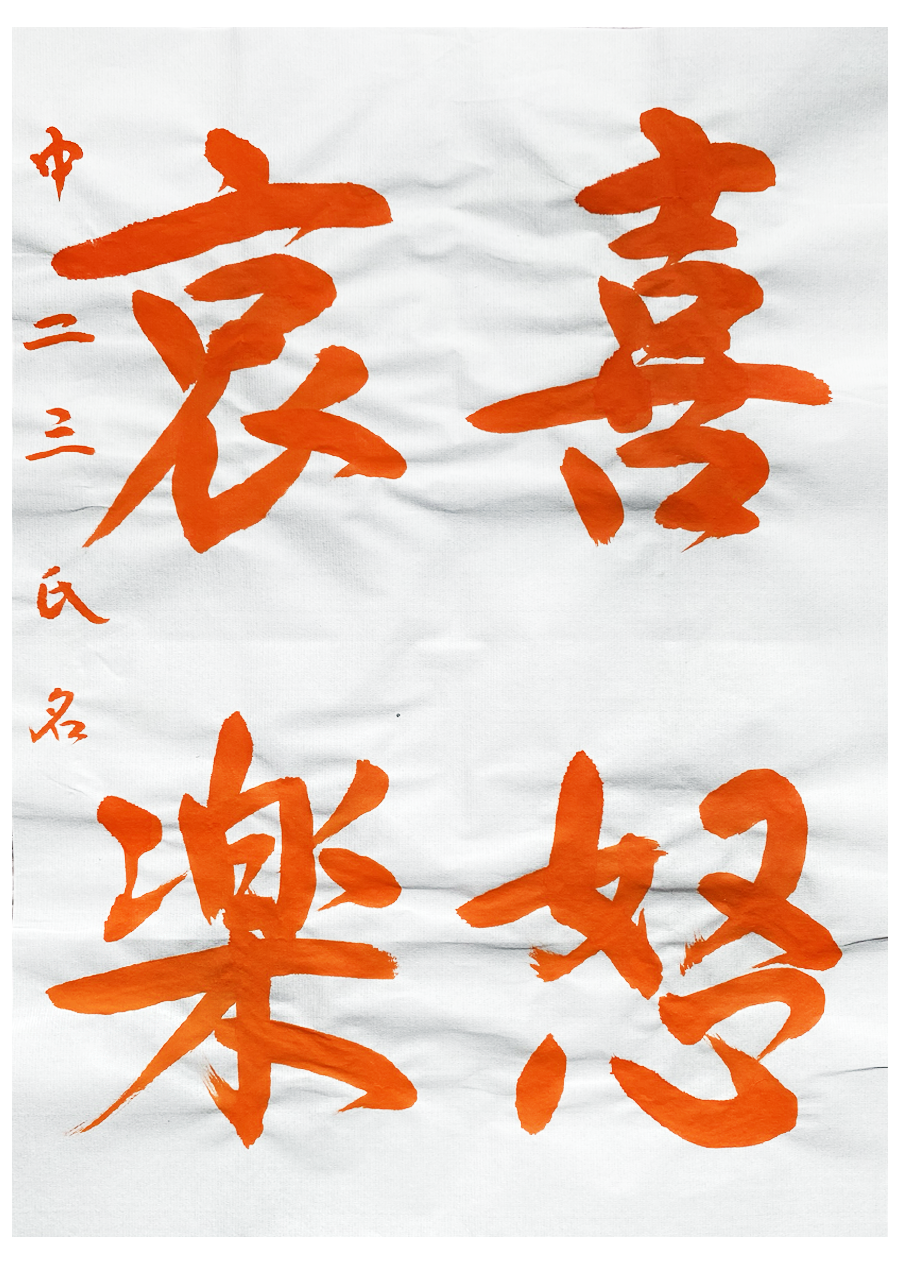 喜怒
哀楽
中二三氏名